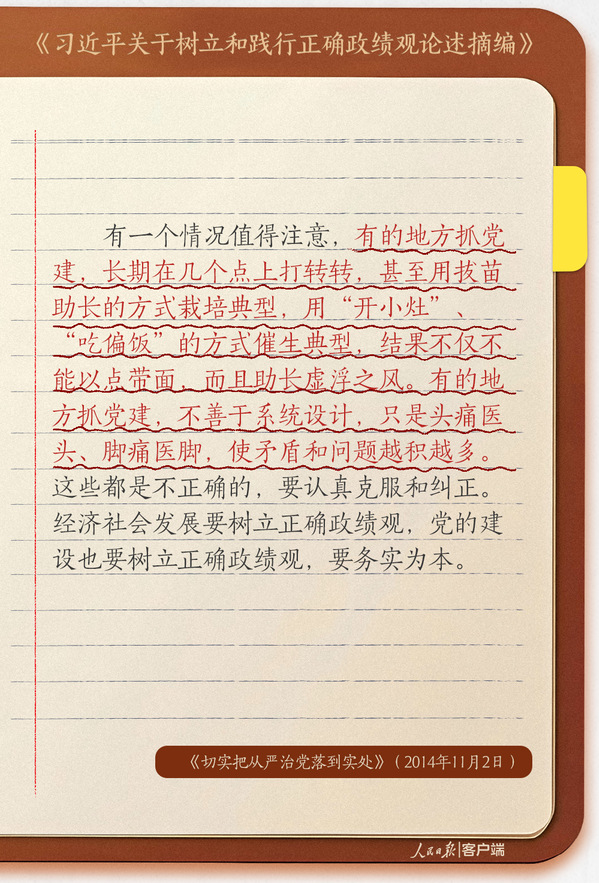 《习近平关于树立和践行正确政绩观论述摘编》
有一个情况值得注意，有的地方抓党
建，长期在几个点上打转转，甚至用拔苗
助长的方式栽培典型，用“开小灶”、
“吃偏饭”的方式催生典型，结果不仅不
能以点带面，而且助长虚浮之风。有的地
方抓党建，不善于系统设计，只是头痛医
头、脚痛医脚，使矛盾和问题越积越多。
这些都是不正确的，要认真克服和纠正。
经济社会发展要树立正确政绩观，党的建
设也要树立正确政绩观，要务实为本。
《切实把从严治党落到实处》（2014年11月2日）
人民日报|客户端